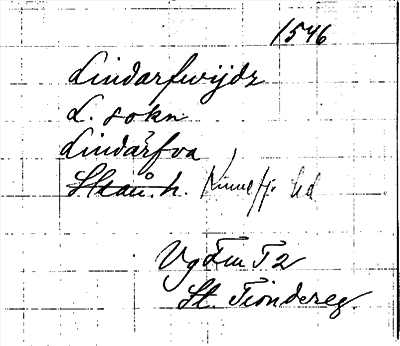 1546
Lindarfwijdz
L. sokn
Lindärfva
Skån. h. Kinnefj. hd
Vg Fm T2
St. Tiondereg.